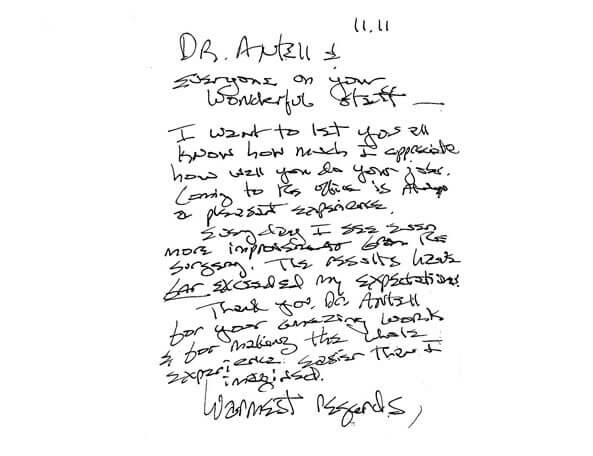 11.11
DR. ANTELL &
everyone on your
wonderful staff —
I want to let you all
know how much I appreciate
how well you do your jobs.
Coming to the office is Always
a pleasant experience.
Every day I see even
more improvements from the
surgery. The results have
far exceeded my expectations!
Thank you, Dr. ANTELL
for your amazing work
& for making the whole
experience easier than I
imagined.
Warmest Regards,